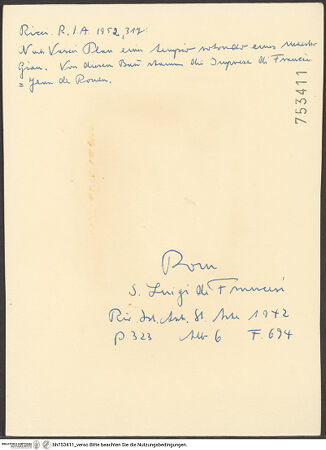 Ricci. R.I.A 1952, 317.
Nach Vasari Plan eines tempio rotondo eines maestro
Gian. Von diesem Bau stammen die Imprese di Francia
Jean de Rouen.
753411
Rom
S. Luigi dei Francesi
Riv. Ist. Arch. St. Arte 1942
p 323 Abb 6 F. 694
bh753411_verso Bitte beachten Sie die Nutzungsbedingungen.